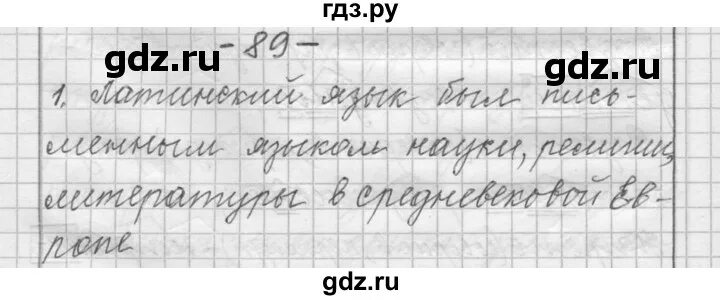 гдз.ру
gdz.ru
- 89 -
gdz.ru
1. Латинский язык был пись-
менным языком науки, религии,
литературы в средневековой Ев-
ропе
gdz.ru
gdz.ru
gdz.ru